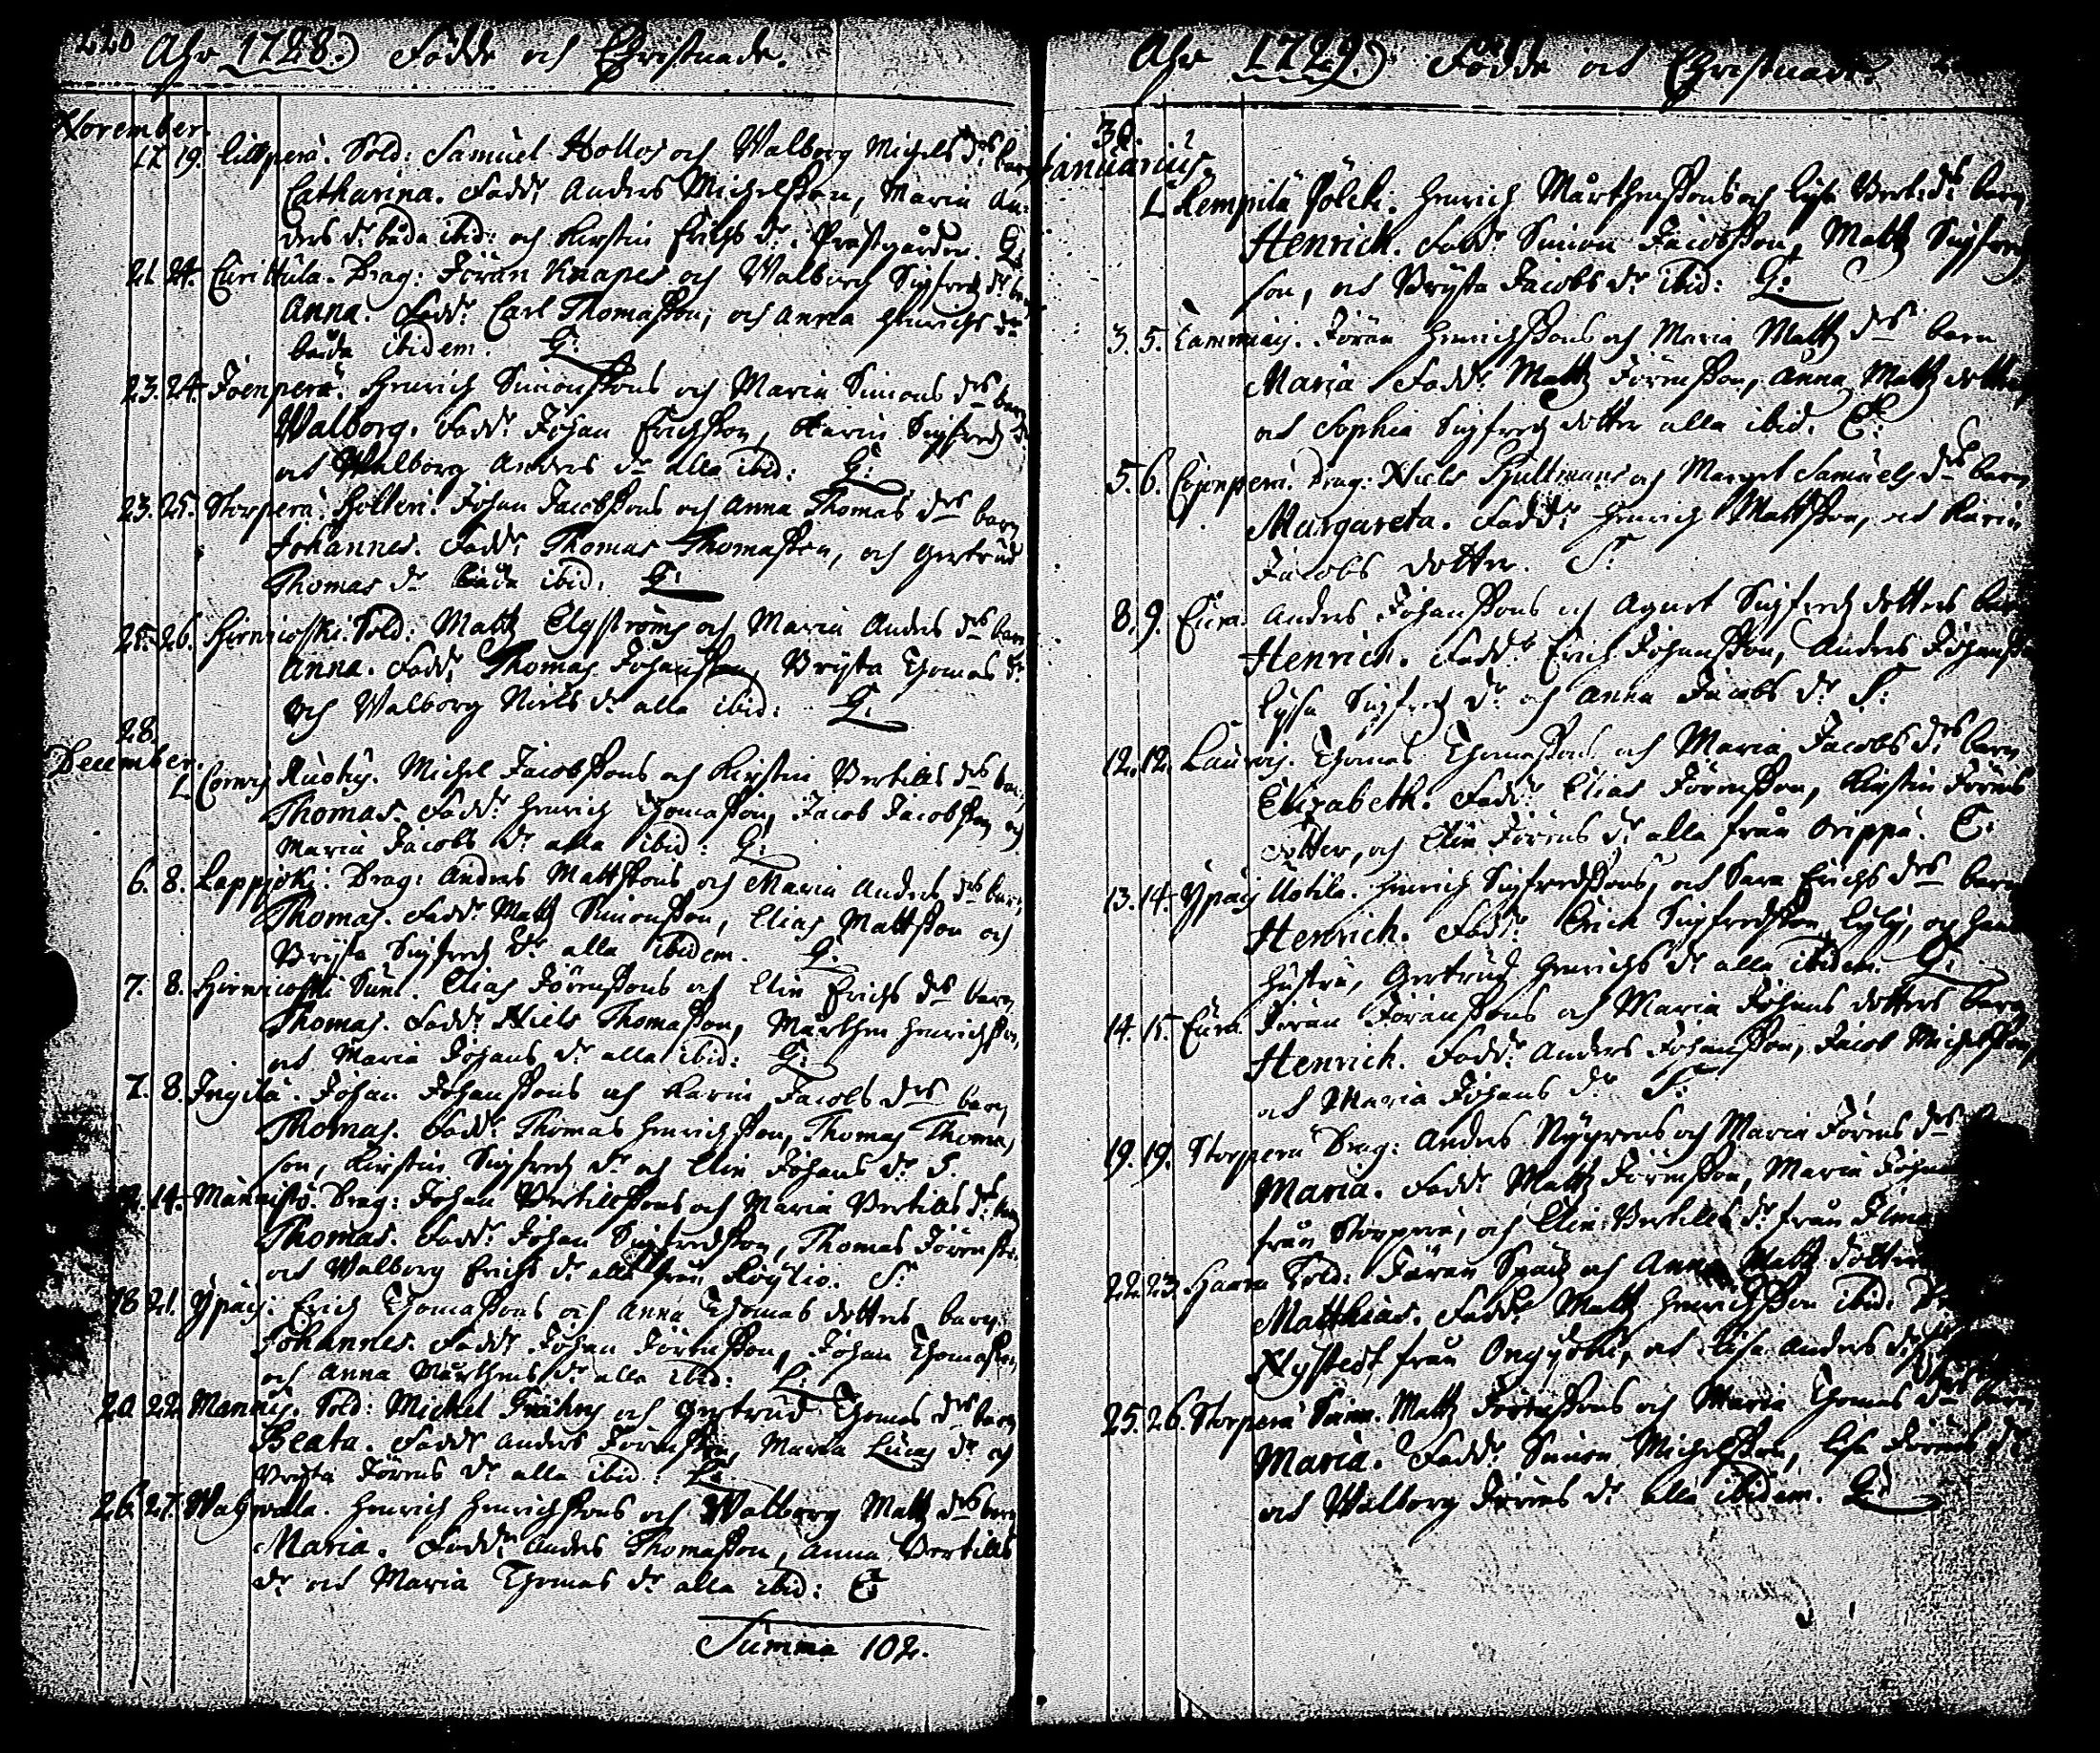 220 Åhr 1728. Födde och Christnade.
November.
17. 19. Lillperä. Sold: Samuel Hollos och Walborg Michels drs barn
Catharina. Fadd. Anders Michelsson, Maria An-
ders dr båda ibid: och Kirstin Erichs dr i Prästgården. G.
21. 24. Curittula. Drag: Jöran Knapes och Walborg Sigfreds drs barn
Anna. Fadd. Carl Thomasson, och Anna Henrichs dr
båda ibidem. G.
23. 24. Joenperä. Henrich Simonssons och Maria Simons drs barn
Walborg. Fadd. Johan Erichsson, Karin Sigfreds dr
och Walborg Anders dr alla ibid: G.
23. 25. Storperä. Johan Jacobssons och Anna Thomas drs barn
Johannes. Fadd. Thomas Thomasson, och Gertrud
Thomas dr båda ibid: G.
25. 26. Hirwikoski. Sold: Matts Elgströms och Maria Anders drs barn
Anna. Fadd. Thomas Johansson, Brijta Thomas dr
och Walborg Niels dr alla ibid: G.
28.
December.
1. Ruohu. Michel Jacobssons och Kirstin Bertills drs barn
Thomas. Fadd. Henrich Thomasson, Jacob Jacobsson och
Maria Jacobs dr alla ibid: G.
6. 8. Lappjoki. Drag: Anders Mattssons och Maria Anders drs barn
Thomas. Fadd. Matts Simonsson, Elias Mattsson och
Brijta Sigfreds dr alla ibidem. G.
7. 8. Hirwikoski. Elias Jörenssons och Elin Erichs drs barn
Thomas. Fadd. Niels Thomasson, Mårthen Henrichsson,
och Maria Johans dr alla ibid: G.
7. 8. Ingila. Johan Johanssons och Karin Jacobs drs barn
Thomas. Fadd. Thomas Henrichsson, Thomas Thomas-
son, Kirstin Sigfreds dr och Elin Johans dr S.
14. Mannistö. Drag: Johan Bertillssons och Maria Bertills drs barn
Thomas. Fadd. Johan Sigfredsson, Thomas Jörensson
och Walborg Erichs dr alla från Köyliö. S.
18. 21. Ypäis. Erich Thomassons och Anna Thomas dotters barn
Johannes. Fadd. Johan Jörensson, Johan Thomasson
och Anna Mårthens dr alla ibid: G.
20. 22. Mannis. Sold: Michel och Gertrud Thomas drs barn
Beata. Fadd. Anders Jörensson, Maria Lucas dr och
Brijta Jörens dr alla ibid: G.
26. 27. Henrich Henrichssons och Walborg Matts drs barn
Maria. Fadd. Anders Thomasson, Anna Bertills
dr och Maria Thomas dr alla ibid: C.
Summa 102.
Åhr 1729. Födde och Christnade.
30.
Januarius.
1. Kempilä Pölcki. Henrich Mårthenssons och Lisa Bert: drs barn
Henrich. Fadd. Simon Jacobsson, Matts Sigfreds
son, och Brijta Jacobs dr ibid: G.
3. 5. Lammais. Jöran Henrichssons och Maria Matts drs barn
Maria. Fadd. Matts Jörensson, Anna Matts dotter
och Sophia Sigfreds dotter alla ibid. C.
5. 6. Drag: Niels Hultmans och Marget Samuels drs barn
Margareta. Fadd. Henrich Mattsson, och Karin
Jacobs dotter. S.
8. 9. Eura. Anders Johanssons och Agnet Sigfreds dotters barn
Henrich. Fadd. Erich Johansson, Anders Johansson
Lijsa Sigfreds dr och Anna Jacobs dr S.
12. 12. Laurois. Thomas Thomassons och Maria Jacobs drs barn
Elizabeth. Fadd. Elias Jörensson, Kirstin Jörens
dotter, och Elin Jörens dr alla från Orippä. C.
13. 14. Ypäis Uotila. Henrich Sigfredssons, och Sara Erichs drs barn
Henrich. Fadd. Erich Sigfredsson, och hans
hustru, Gertrud Henrichs dr alla ibidem. G.
14. 15. Eura. Jöran Jöranssons och Maria Johans dotters barn
Henrich. Fadd. Anders Johansson, Jacob Michelsson,
och Maria Johans dr S.
19. 19. Storperä Drag: Anders Nygrens och Maria Jörens drs
Maria. Fadd. Matts Jörensson, Maria Johans
från Storperä, och Elin Bertills dr från
22. 23. Haara Sold: Jöran och Anna Matts dotters
Matthias. Fadd. Matts Henrichsson ibid:
Nystedt från och Lisa Anders dr
25. 26. Storperä Matts Jörenssons och Maria Thomas drs barn
Maria. Fadd. Simon Michelsson, Lisa Jörens dr
och Walborg Jörens dr alla ibidem. G.